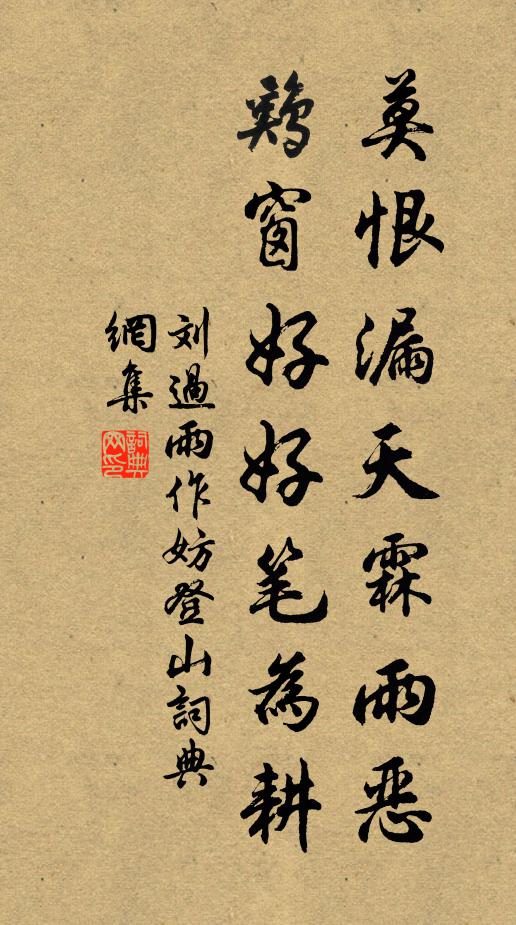 莫恨漏天霖雨恶
鸡窗好好笔为耕
刘過雨作妨登山詞典
網集
詞典网印